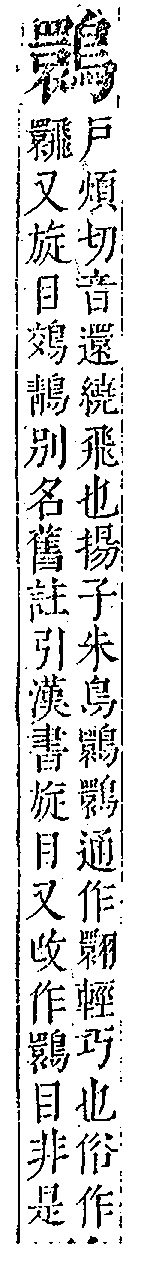 䴉
戶煩切音還繞飛也揚子朱鳥䴉䴉通作翾輕巧也俗作
又旋目鵁鶄別名舊註引漢書旋目又改作䴉目非是